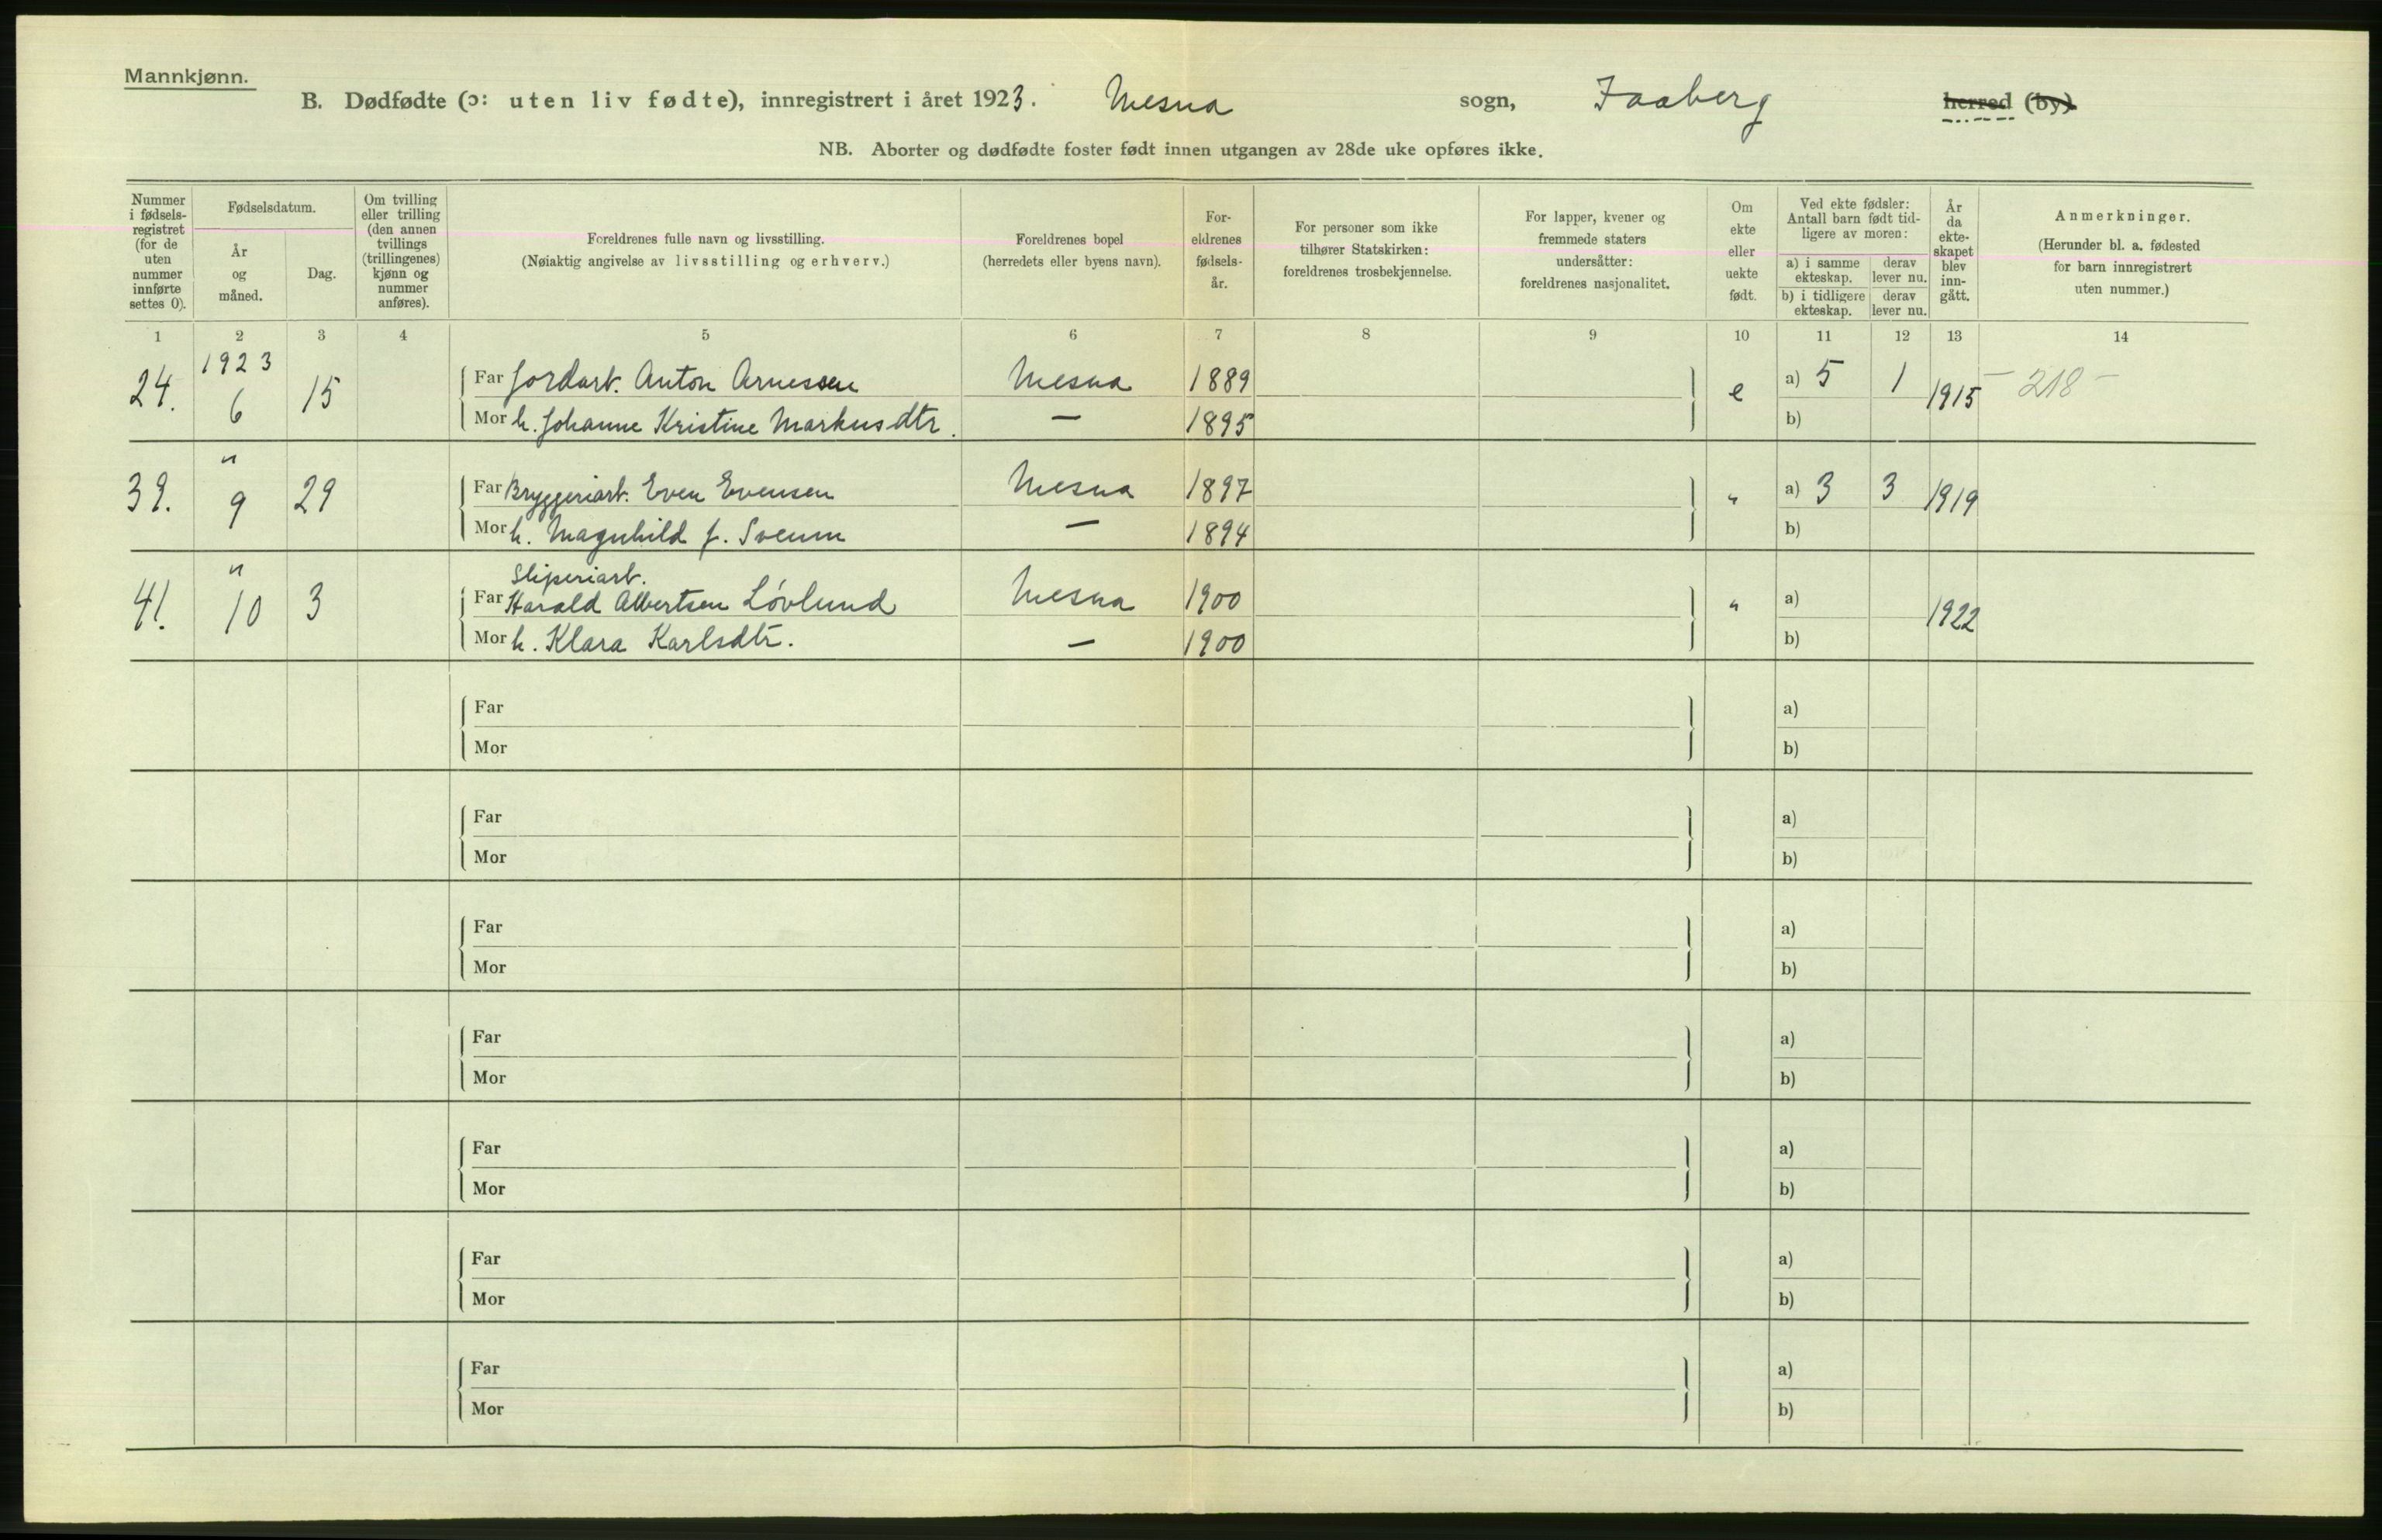 Mannkjønn.
B. Dødfødte (ɔ: uten liv fødte), innregistrert i året 1923. Mesna sogn, Faaberg herred (by).
NB. Aborter og dødfødte foster født innen utgangen av 28de uke opføres ikke.
Nummer i fødsels-registret (for de uten nummer innførte settes 0).
Fødselsdatum.
År og måned.
Dag.
Om tvilling eller trilling (den annen tvillings (trillingenes) kjønn og nummer anføres).
Foreldrenes fulle navn og livsstilling.
(Nøiaktig angivelse av livsstilling og erhverv.)
Foreldrenes bopel
(herredets eller byens navn).
For-eldrenes fødsels-år.
For personer som ikke tilhører Statskirken: foreldrenes trosbekjennelse.
For lapper, kvener og fremmede staters undersåtter: foreldrenes nasjonalitet.
Om ekte eller uekte født.
Ved ekte fødsler: Antall barn født tid-ligere av moren:
a) i samme ekteskap. derav lever nu.
b) i tidligere ekteskap. derav lever nu.
År da ekte-skapet blev inn-gått.
Anmerkninger.
(Herunder bl. a. fødested for barn innregistrert uten nummer.)
1 2 3 4 5 6 7 8 9 10 11 12 13 14
24. 1923 6 15 Far Jordarb. Anton Arnessen Mesna 1889 e a) 5 1 1915 – 218 –
Mor h. Johanne Kristine Markusdtr. — 1895 b)
39. " 9 29 Far Bryggeriarb. Even Evensen Mesna 1897 " a) 3 3 1919
Mor h. Magnhild f. Sveum — 1894 b)
Sliperiarb.
41. " 10 3 Far Harald Albertsen Løvlund Mesna 1900 " a) 1922
Mor h. Klara Karlsdtr. — 1900 b)
Far a)
Mor b)
Far a)
Mor b)
Far a)
Mor b)
Far a)
Mor b)
Far a)
Mor b)
Far a)
Mor b)
Far a)
Mor b)